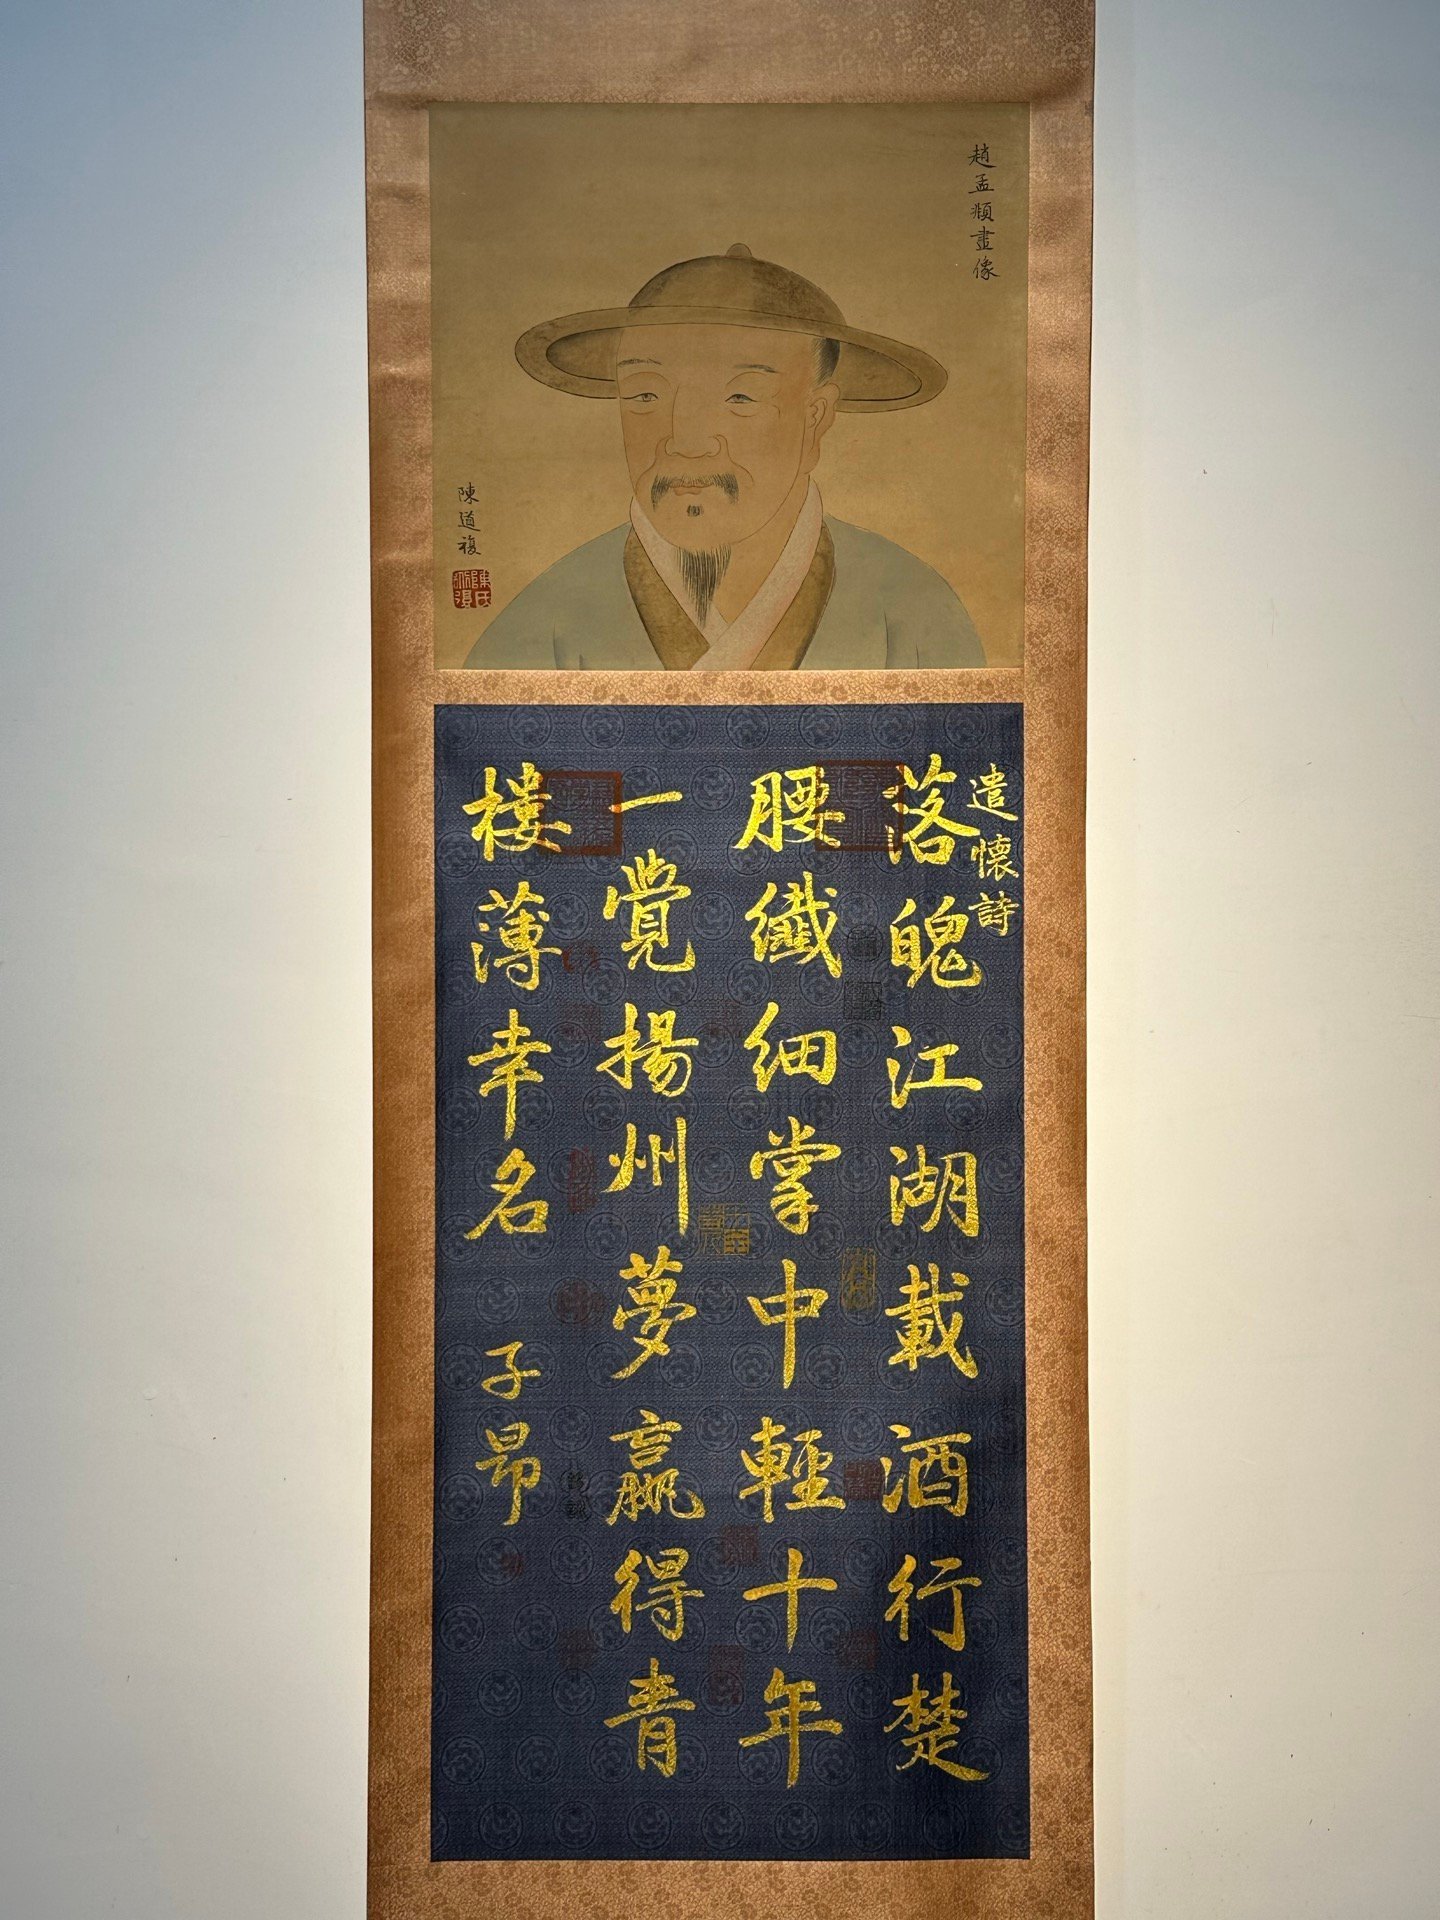 趙孟頫畫像
陳道複
遣懷詩
落魄江湖載酒行楚
腰纖細掌中輕十年
一覺揚州夢贏得青
樓薄幸名 子昂